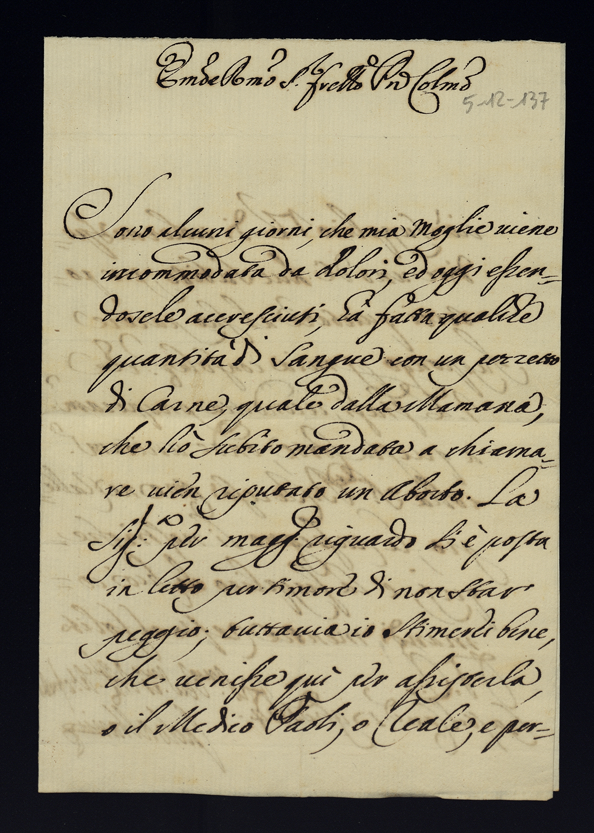 Emõ e Rmõ S.r Fretto Pñ Colmõ
5-12-137
Sono alcuni giorni, che mia Moglie viene
incommodata da dolori, ed oggi essen=
dosele accresciuti, hà fatta qualche
quantità di Sangue con un pezzetto
di Carne, quale dalla Mamana,
che hò subito mandata a chiama=
re vien riputato un Aborto. La
Sig.ra per magg.r riguardo si è posta
in letto per timore di non star
peggio; tuttavia io stimerei bene,
che venisse quì per assisterla,
o il Medico Paoli, o Leale, e per=